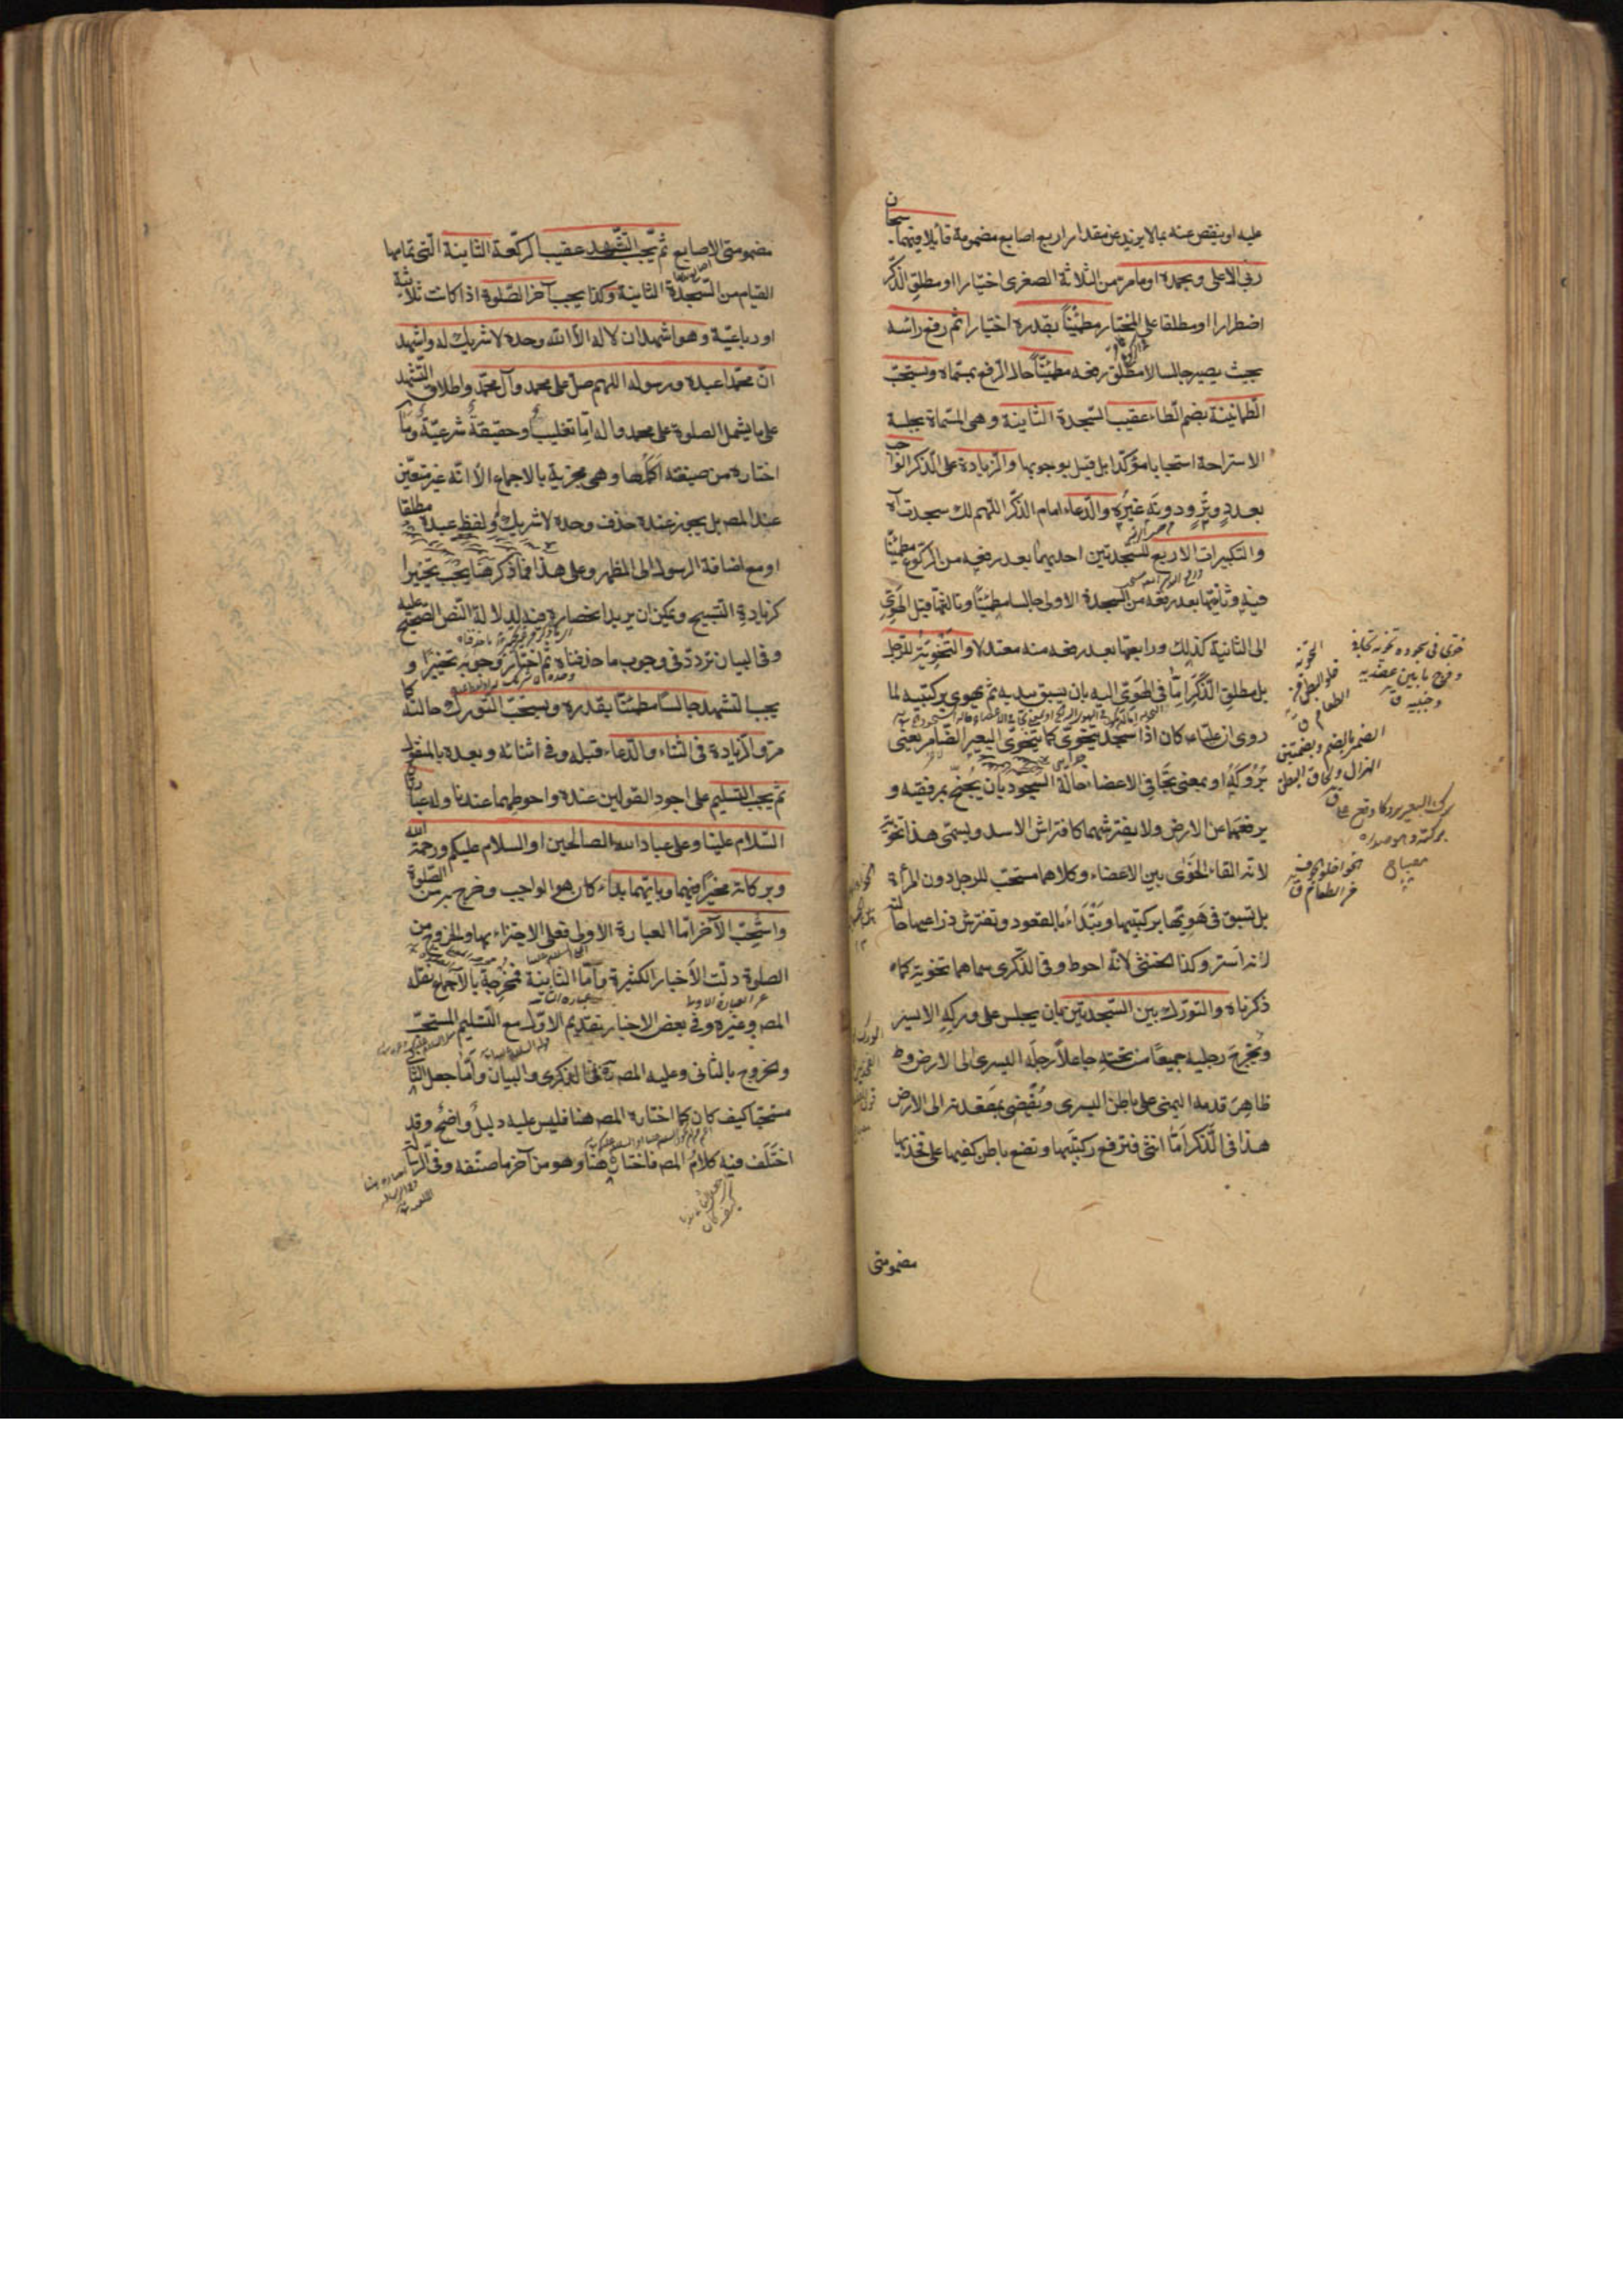 عليه او ينقص عنه بما لا يزيد عن مقدار اربع اصابع مضمومة قائلا فيهما سبحان
ربي الاعلى وبحمده او ما مر من الثلاثة الصغرى اختيارا او مطلق الذكر
اضطرارا او مطلقا على المختار مطمئنا بقدره اختيارا ثم رفع رأسه
بحيث يصير جالسا لا مطلق رفعه مطمئنا حال الرفع بمسماه ويستحب
الطمأنينة بضم الطاء عقيب السجدة الثانية وهي المسماة بجلسة
الاستراحة استحبابا مؤكدا بل قيل بوجوبها والزيادة على الذكر الواجب
بعدد وتر ودونه غيره والدعاء امام الذكر اللهم لك سجدت آه
والتكبيرات الاربع للسجدتين احديهما بعد رفعه من الركوع مطمئنا
فيه وثانيتها بعد رفعه من السجدة الاولى جالسا مطمئنا وثالثتها قبل الهوي
الى الثانية كذلك ورابعتها بعد رفعه منه معتدلا والتخوية للرجل
بل مطلق الذكر اما في الهوي اليه بان يسبق بيديه ثم يهوي بركبتيه لما
روي ان عليا ع كان اذا سجد يتخوى كما يتخوى البعير الضامر يعني
بروكه او بمعنى تجافي الاعضاء حالة السجود بان يجنح بمرفقيه و
يرفعهما عن الارض ولا يفترشهما كافتراش الاسد ويسمى هذا تخوية
لانه القاء الخوى بين الاعضاء وكلاهما مستحب للرجل دون المرأة
بل تسبق في هويها بركبتيها وتبدأ بالقعود وتفترش ذراعيها حالته
لانه استر وكذا الخنثى لانه احوط وفي الذكرى سماهما تخوية كما
ذكرناه والتورك بين السجدتين بان يجلس على وركه الايسر
ويخرج رجليه جميعا من تحته جاعلا رجله اليسرى الى الارض و
ظاهر قدمه اليمنى على باطن اليسرى ويفضي بمقعدته الى الارض
هذا في الذكر اما الانثى فترفع ركبتيها وتضع باطن كفيها على فخذيها
مضمومتي
خوى في سجوده تخوية تجافى
وفرج ما بين عضديه
وجنبيه ق
الضمر بالضم وبضمتين
الهزال ولحاق البطن
برك البعير بروكا وقع على
بركه وهو صدره
مصباح
مضمومتي الاصابع ثم يجب التشهد عقيب الركعة الثانية التي تمامها
القيام من السجدة الثانية وكذا يجب آخر الصلوة اذا كانت ثلاثية
او رباعية وهو اشهد ان لا اله الا الله وحده لا شريك له واشهد
ان محمدا عبده ورسوله اللهم صل على محمد وآل محمد واطلاق التشهد
على ما يشمل الصلوة على محمد وآله اما تغليب او حقيقة شرعية وما
اختاره من صيغته اكملها وهي مجزية بالاجماع الا انه غير متعين
عند المصـ بل يجوز عنده حذف وحده لا شريك له ولفظ عبده مطلقا
او مع اضافة الرسول الى المظهر وعلى هذا فما ذكر هنا يجب تخييرا
كزيادة التسبيح ويمكن ان يريد انحصاره فيه لدلالة النص الصحيح عليه
وفي البيان تردد في وجوب ما حذفناه ثم اختار وجوبه تخييرا و
يجب التشهد جالسا مطمئنا بقدره ويستحب التورك حالته كما
مر والزيادة في الثناء والدعاء قبله وفي اثنائه وبعده بالمنقول
ثم يجب التسليم على اجود القولين عنده واحوطهما عندنا وله عبارتان
السلام علينا وعلى عباد الله الصالحين او السلام عليكم ورحمة الله
وبركاته مخيرا فيهما وبايهما بدأ كان هو الواجب وخرج به من الصلوة
واستحب الآخر اما العبارة الاولى فعلى الاجتزاء بها والخروج من
الصلوة دلت الاخبار الكثيرة واما الثانية فمخرجة بالاجماع نقله
المصـ وغيره وفي بعض الاخبار تقديم الاول مع التسليم المستحب
والخروج بالثاني وعليه المصـ في الذكرى والبيان واما جعل الثاني
مستحبا كيف كان كما اختاره المصـ هنا فليس عليه دليل واضح وقد
اختلف فيه كلام المصـ فاختاره هنا وهو من آخر ما صنفه وفي الرسالة